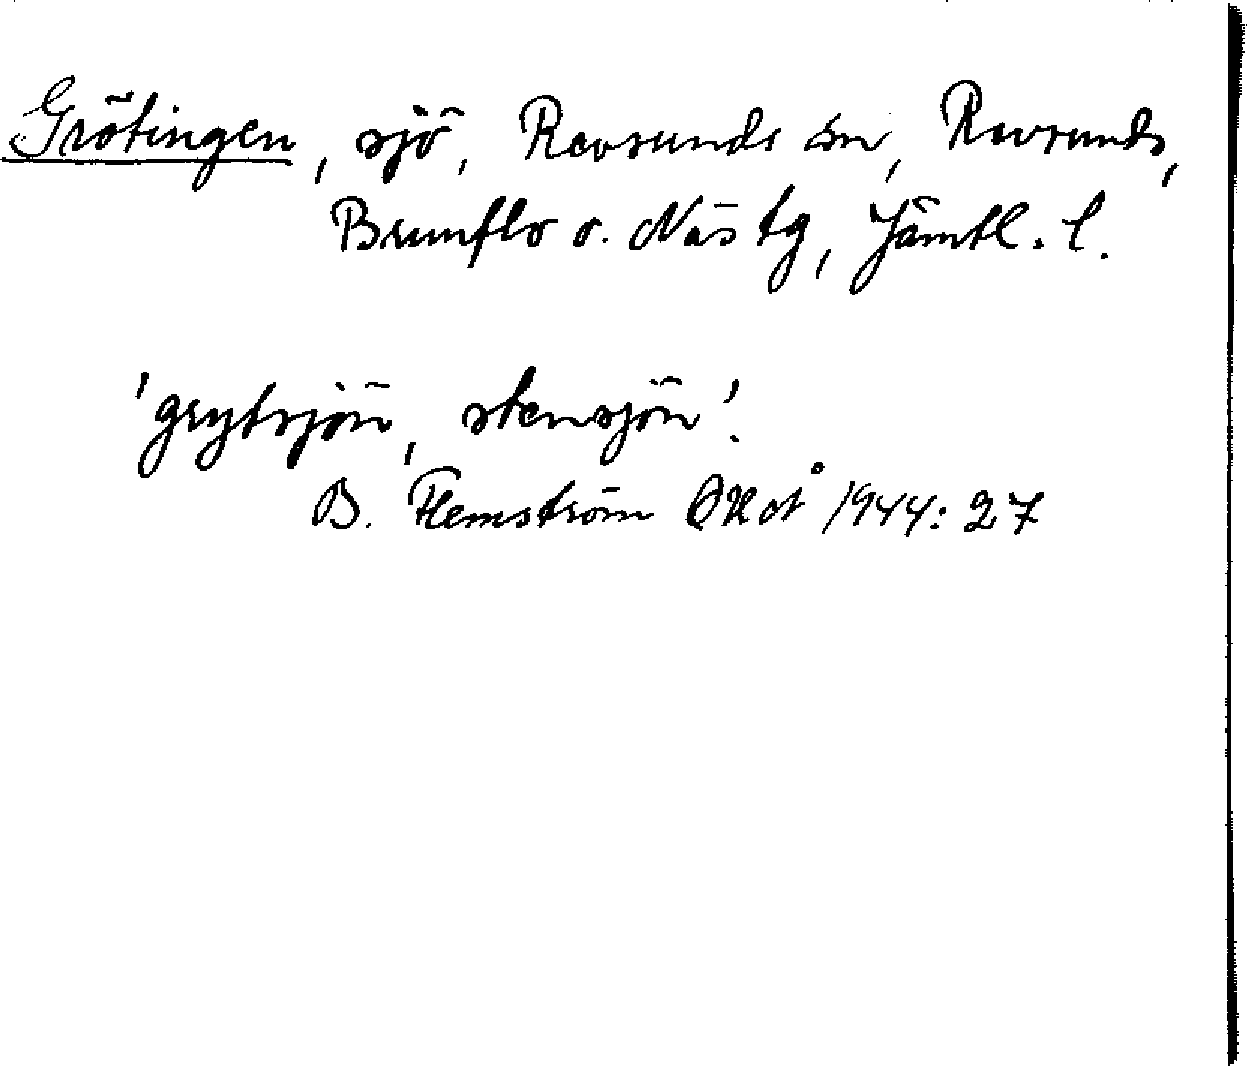 Grötingen, sjö, Revsunds sn, Revsunds,
Brunflo o. Näs tg, Jämtl. l.
'grytsjön, stensjön'.
B. Flemström OKOÅ 1944: 27